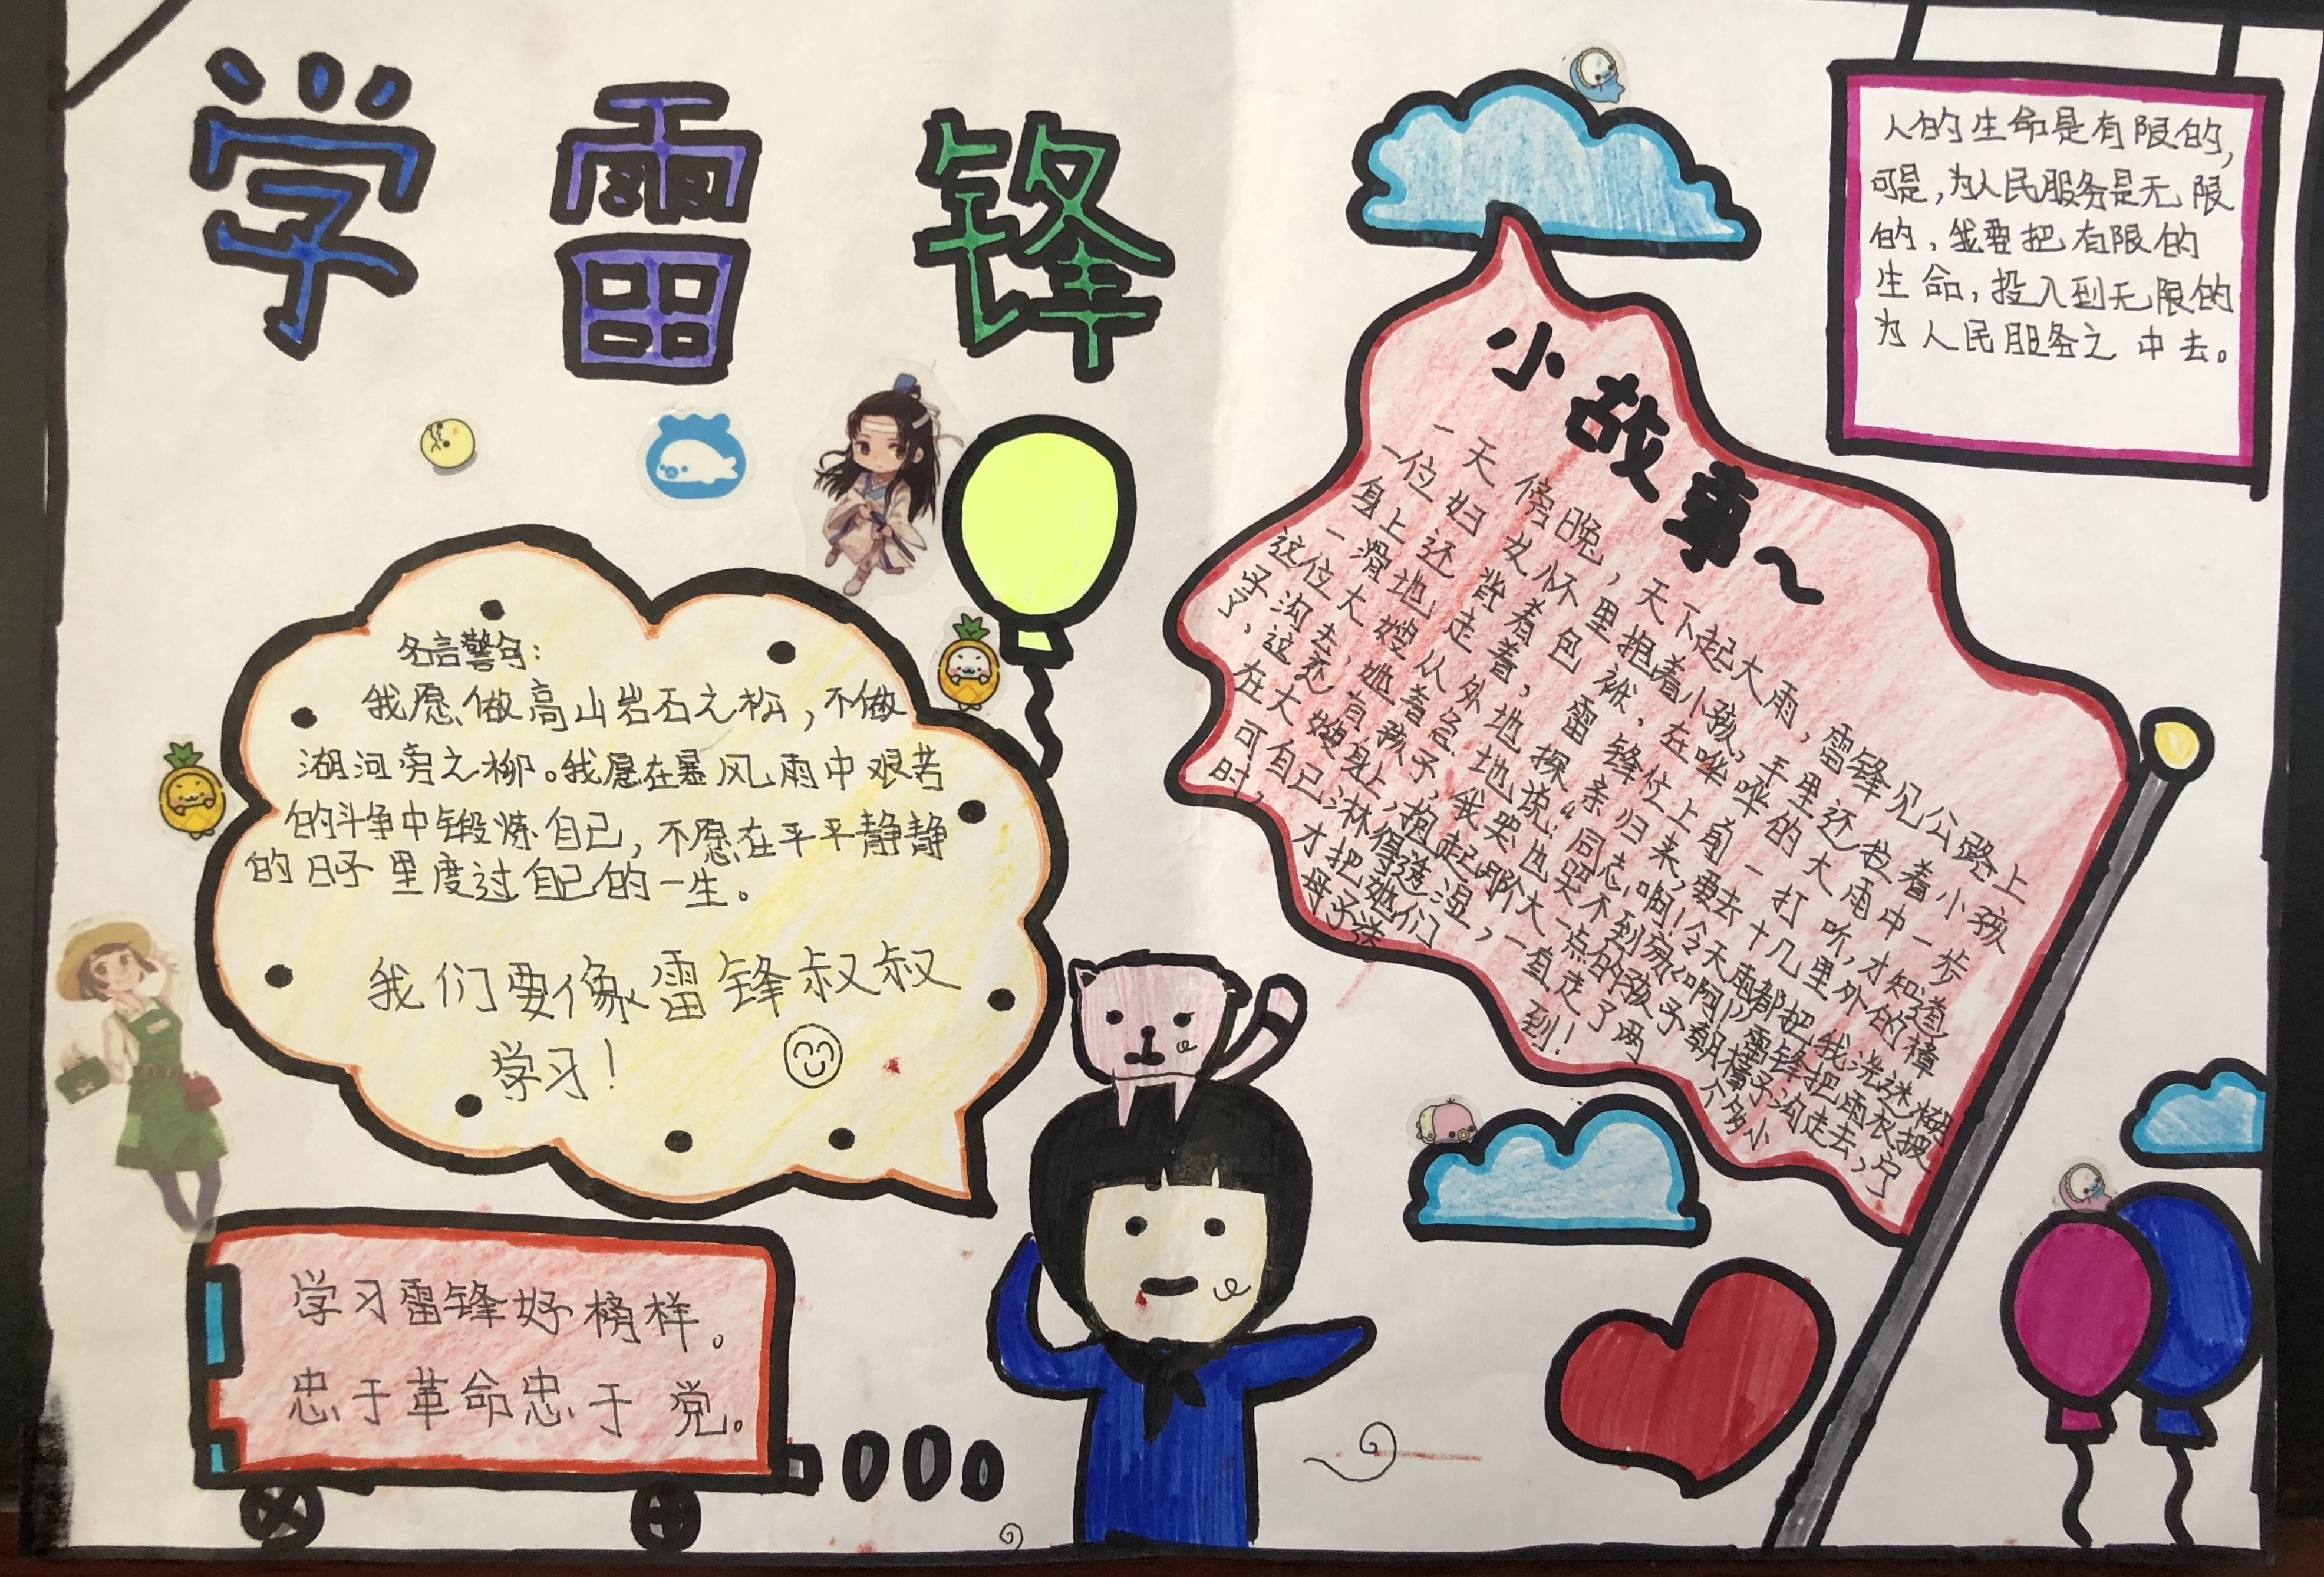 学雷锋
人的生命是有限的,
可是,为人民服务是无限
的,我要把有限的
生命,投入到无限的
为人民服务之中去。
小故事~
一天傍晚,天下起大雨,雷锋见公路上
一位妇女怀里抱着小孩,手里还拉着小孩
身上还背着包袱,在哗哗的大雨中一步
一滑地走着,雷锋位上前一打听,才知道,
这位大嫂从外地探亲归来,要去十几里外的樟
子沟去,她着急地说:“同志啊!今天雨都把我浇迷糊
了,这还有孩子,我哭也哭不到家啊!”雷锋把雨衣披
在大嫂身上,抱起那个大一点的孩子朝樟子沟走去,宁
可自己淋得透湿,一直走了两个多小
时,才把她们
母子送到!
名言警句:
我愿做高山岩石之松,不做
湖河旁之柳。我愿在暴风雨中艰苦
的斗争中锻炼自己,不愿在平平静静
的日子里度过自己的一生。
我们要像雷锋叔叔
学习!
学习雷锋好榜样。
忠于革命忠于党。